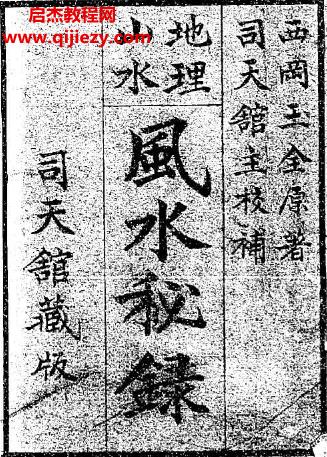 启杰教程网
www.qijiezy.com
西岡玉全原著
司天舘主校補
地理
山水
風水秘録
司天舘藏版